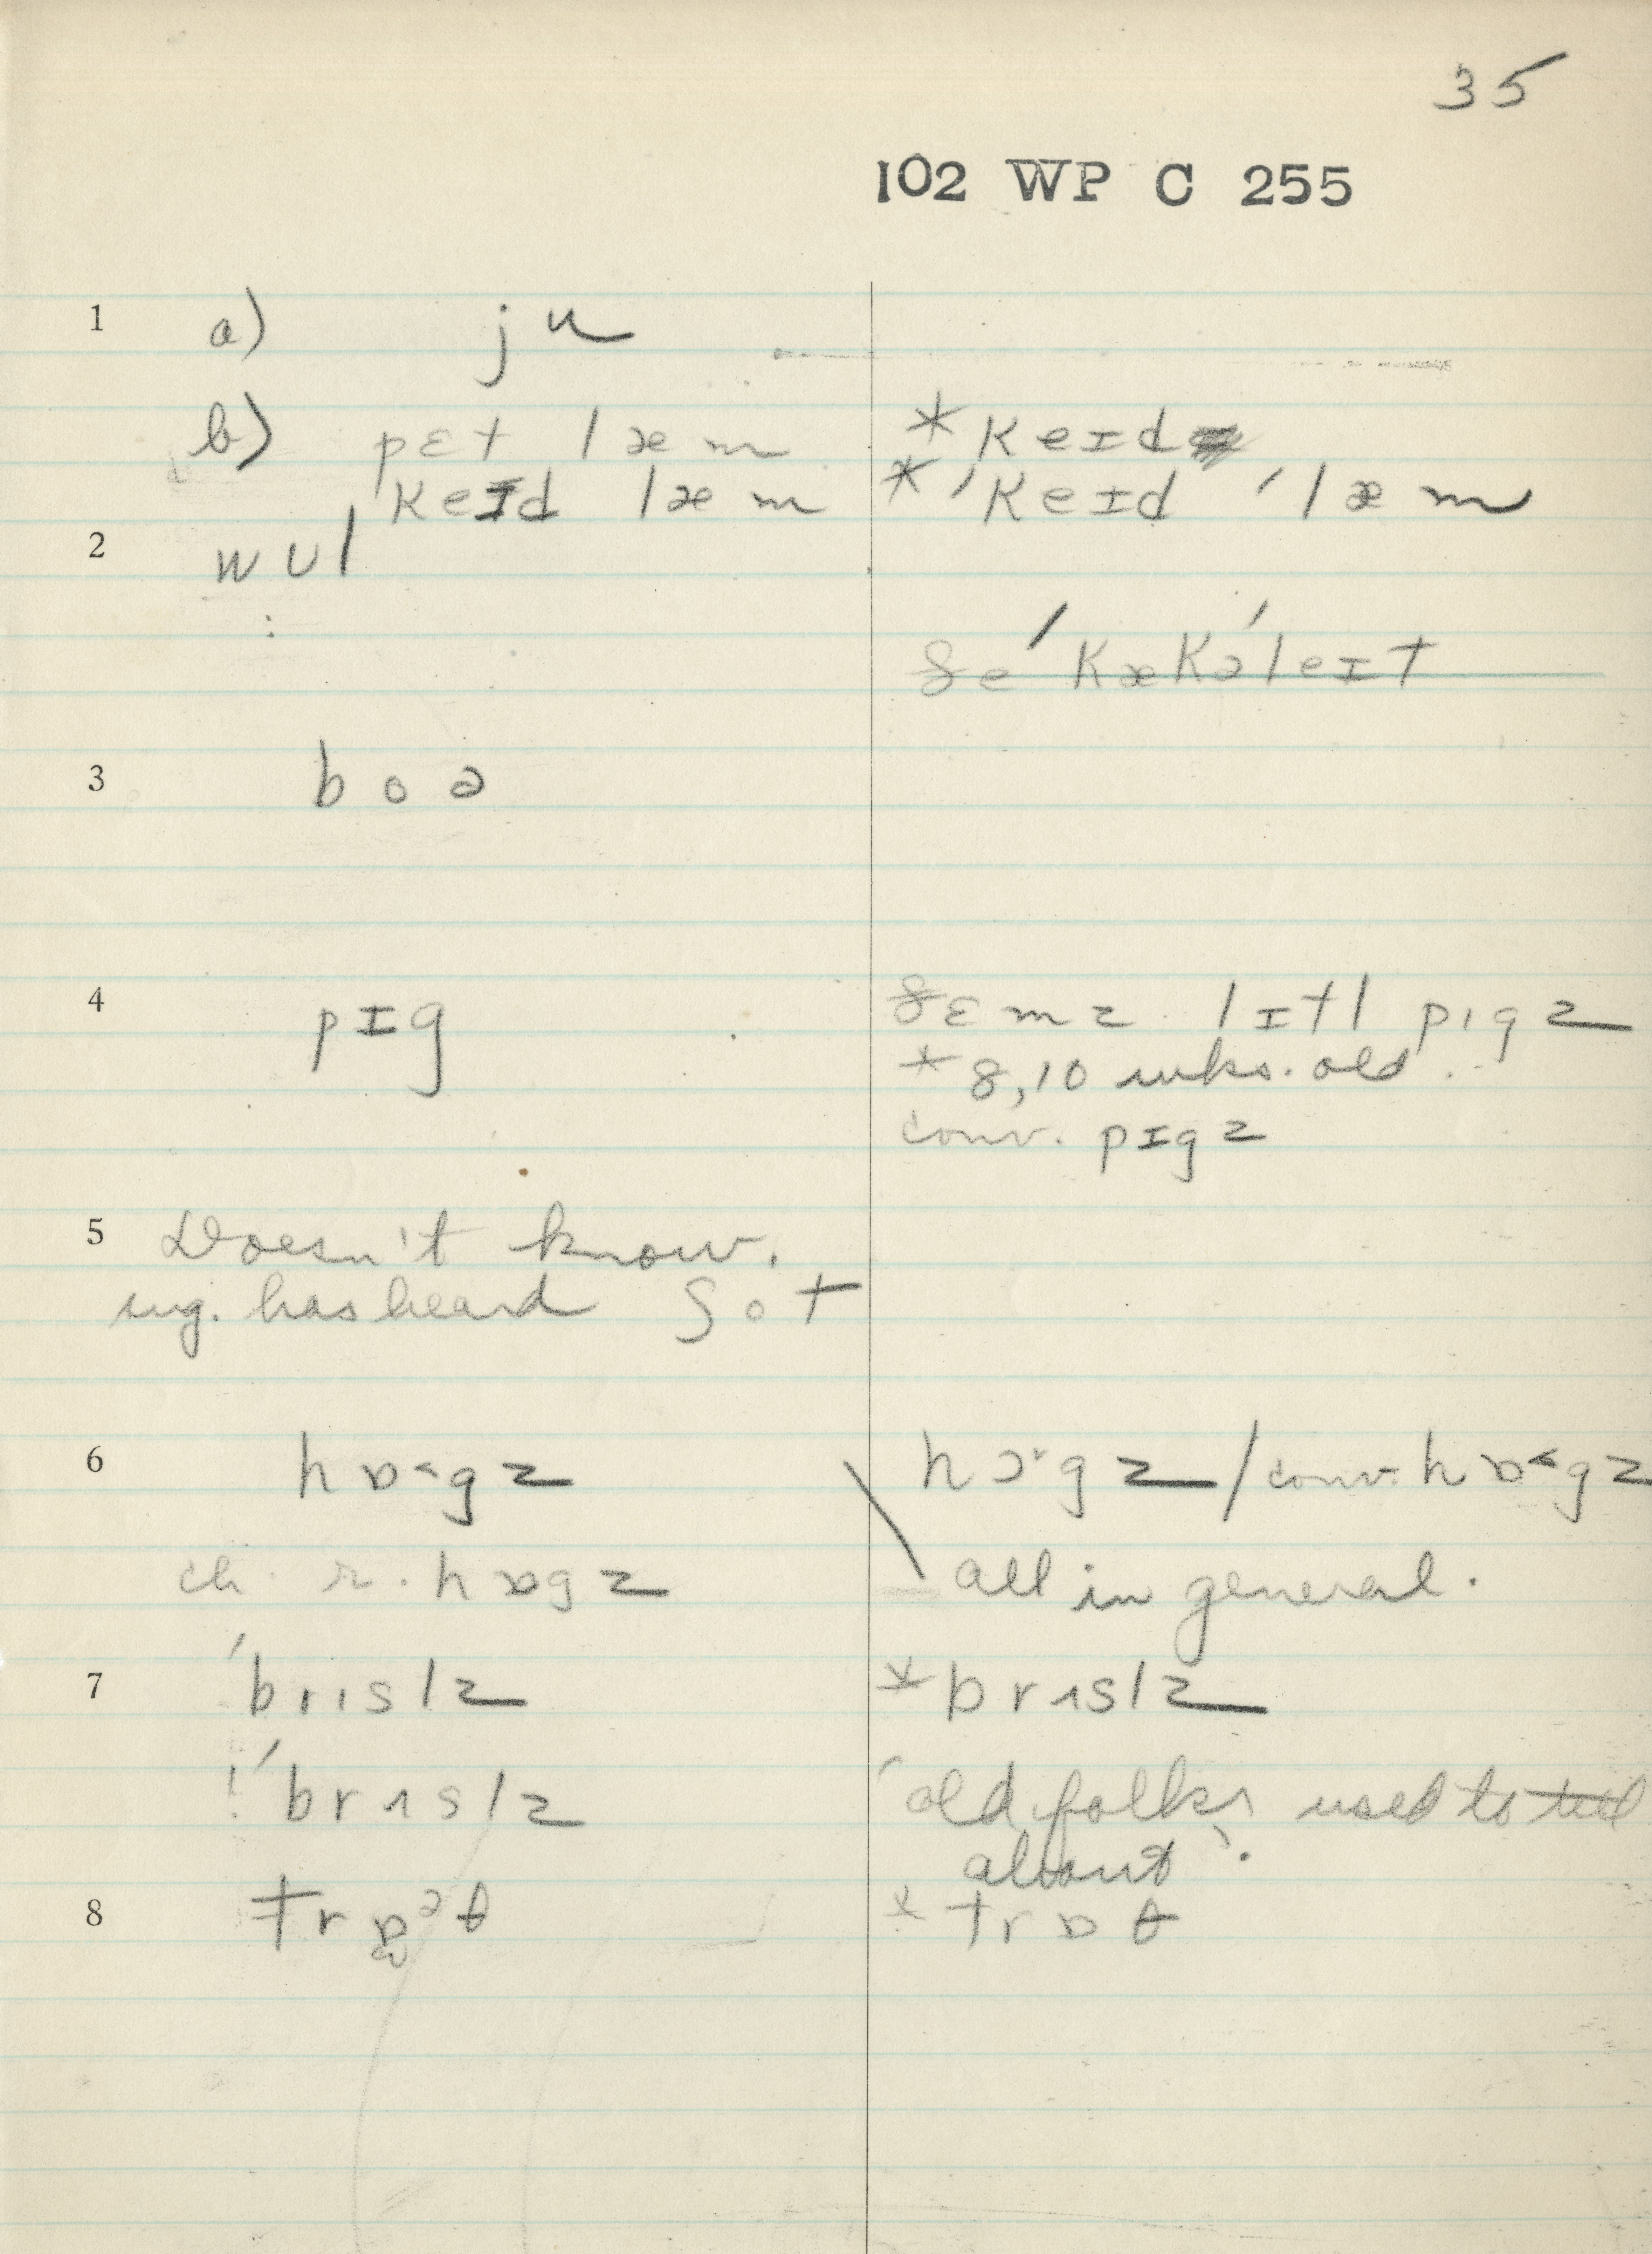 35
102 WP C 255
1 a) ju
b) pɛt læm *keɪd
keɪd læm *ˈkeɪd ˈlæm
2 wʊl
ðe ˈkækəˈleɪt
3 boə
4 pɪg ðɛmz lɪtl pɪgz
*8,10 wks. old.
conv. pɪgz
5 Doesn't know.
sug. has heard ʃot
6 hɒ˂gz hɔ˞gz / conv. hɒ˂gz
ch. r. hɒgz all in general.
7 ˈbrɪslz *brɪslz
! ˈbrɪslz 'old folks used to tell
about'.
8 trɒᵊθ *trɒθ